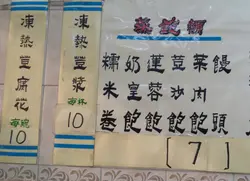 凍熱豆腐花
每碗
10
凍熱豆漿
每杯
10
蒸飽類
糯米卷
奶皇飽
蓮蓉飽
豆沙飽
菜肉飽
饅頭
[7]